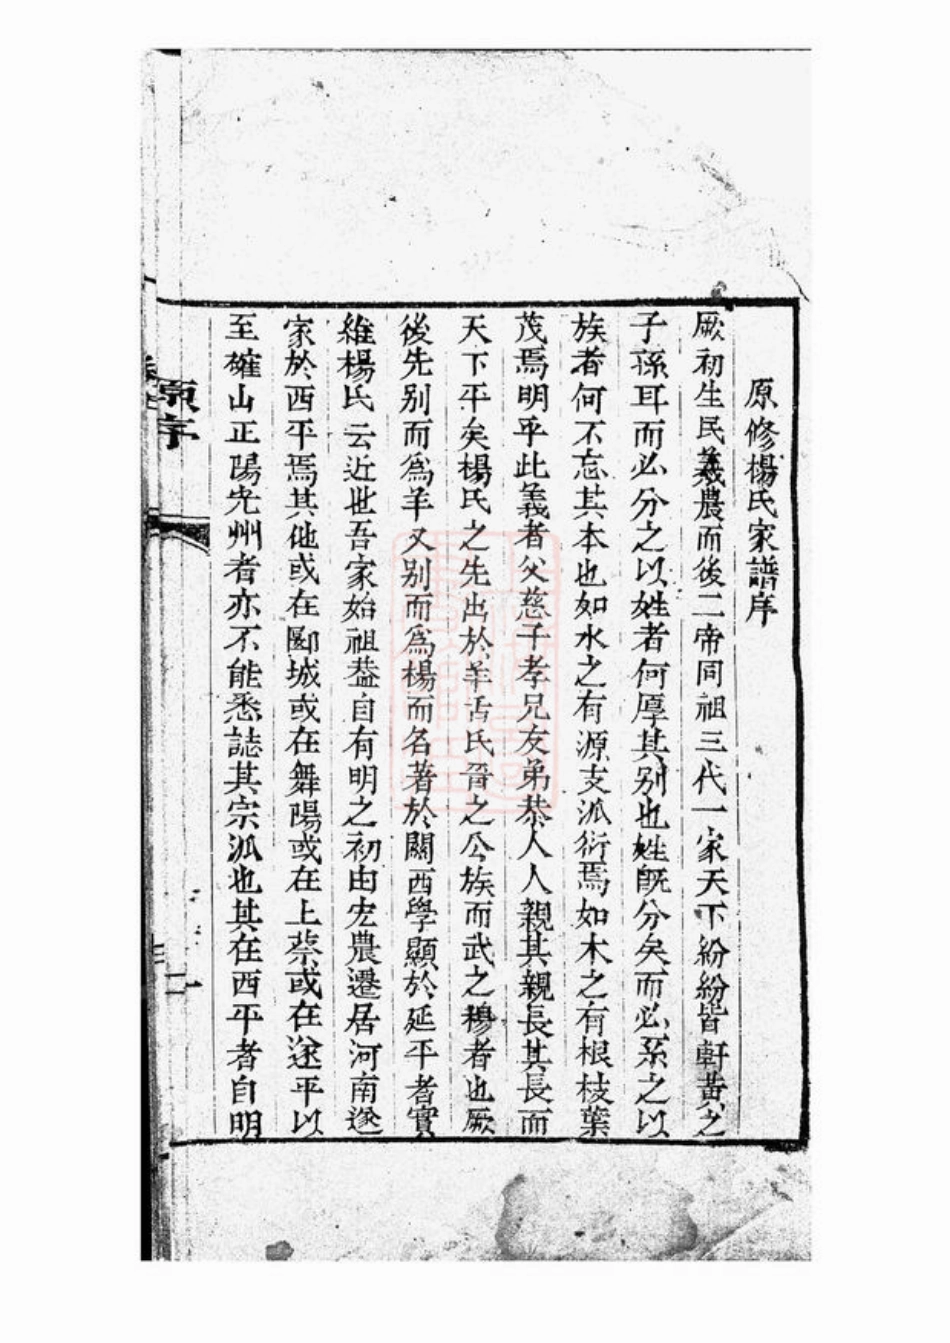 原修楊氏家譜序
厥初生民羲農而後二帝同祖三代一家天下紛紛皆軒黃之
子孫耳而必分之以姓者何厚其别也姓既分矣而必系之以
族者何不忘其本也如水之有源支派衍焉如木之有根枝葉
茂焉明乎此義者父慈子孝兄友弟恭人人親其親長其長而
天下平矣楊氏之先出於羊舌氏晉之公族而武之穆者也厥
後先别而爲羊又别而爲楊而名著於關西學顯於延平者實
維楊氏云近世吾家始祖葢自有明之初由宏農遷居河南遂
家於西平焉其他或在郾城或在舞陽或在上蔡或在遂平以
至確山正陽光州者亦不能悉誌其宗派也其在西平者自明
原序
一